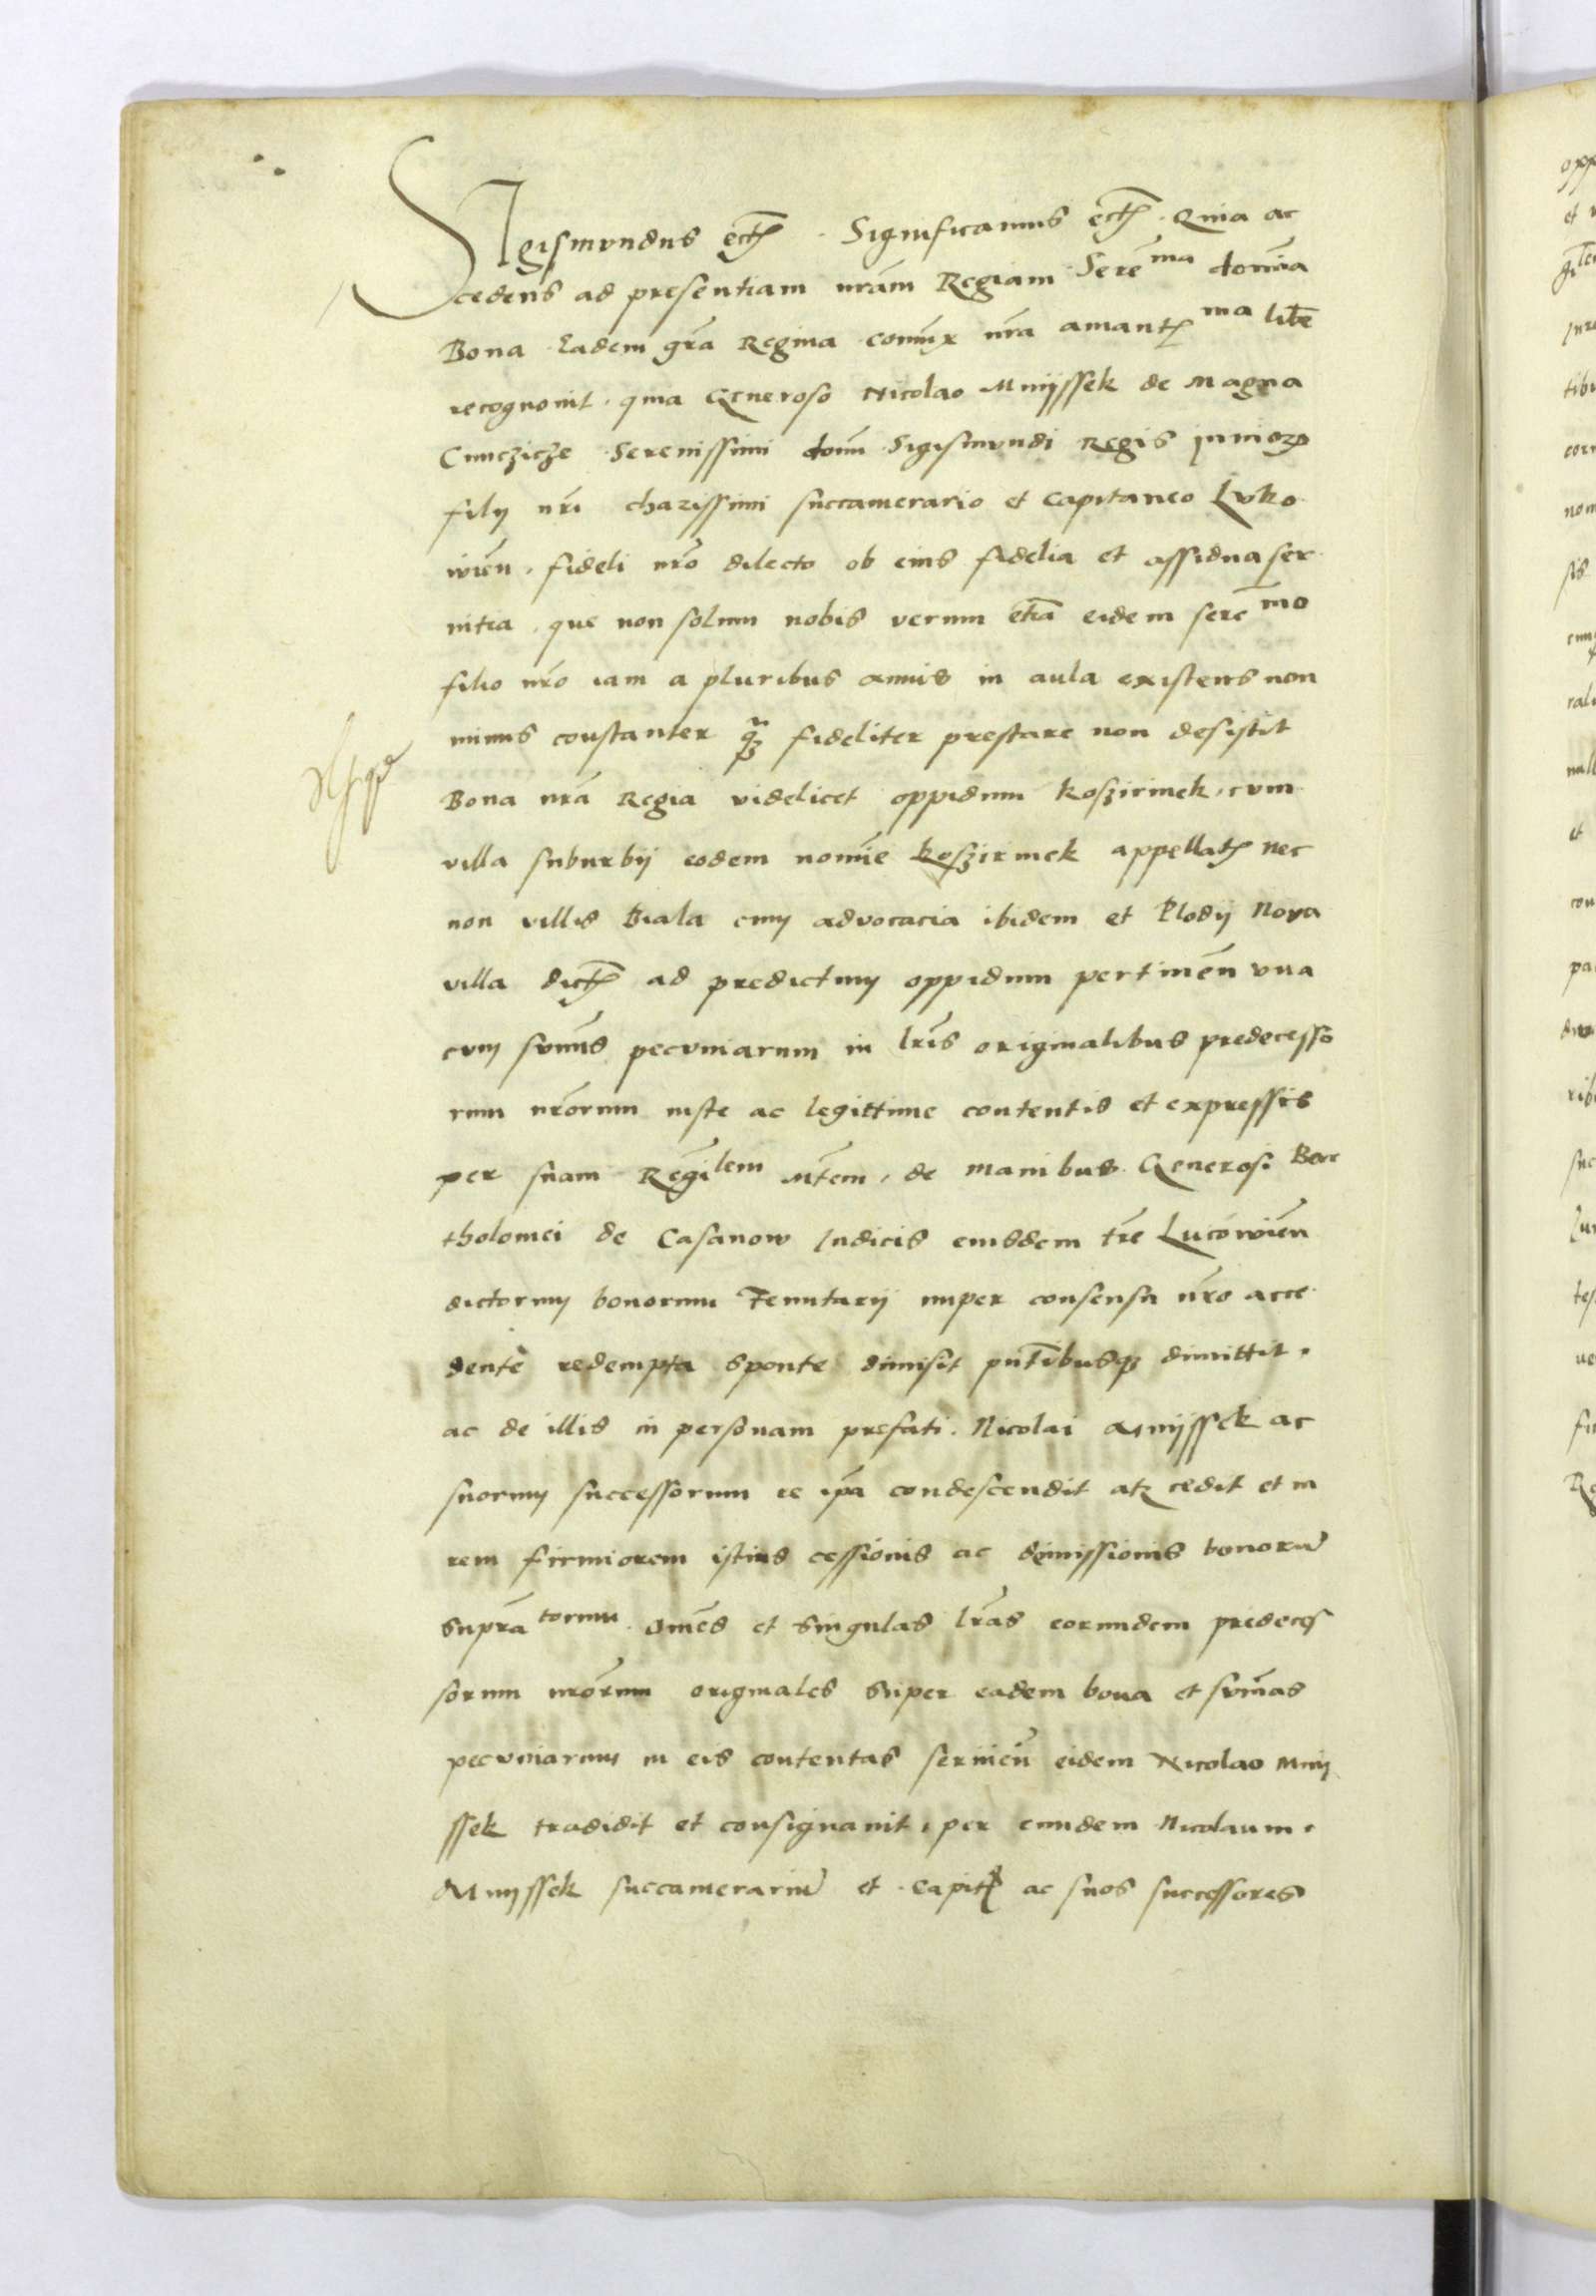 Sigismundus ect. Significamus ect. Quia ac
cedens ad presentiam nrãm Regiam Serẽma domĩa
Bona Eadem grã Regina coniunx nrã amantma libẽ
recognovit. quia Generoso Nicolao Mnijssek de Magna
Cunczicze Serenissimi domĩ Sigismundi Regis iunioris
filij nrĩ charissimi succamerario et Capitaneo Luko
wieñ. fideli nrõ dilecto ob eius fidelia et assidua ser
uitia. que non solum nobis verum etiã eidem serẽmo
filio nrõ iam a pluribus annis in aula existens non
minus constanter q̃ꝫ fideliter prestare non desistit
Bona nrã Regia videlicet oppidum Koszirmek, cum
villa suburbij eodem nomĩe Koszirmek appellat nec
non villis Biala cum advocacia ibidem et Plodij Nova
villa dict ad predictum oppidum pertineñ una
cum sum̃is pecuniarum in lrĩs originalibus predecesso
rum nrõrum iuste ac legittime contentis et expressis
per suam Reg̃ilem Mtẽm, de manibus Generosi Bar
tholomei de Casanow Iudicis eiusdem trẽ Lucowieñ
dictorum bonorum Tenutarij nuper consensu nrõ acce
dente redempta sponte dimisit pñtibusqꝫ dimittit.
ac de illis in personam prefati. Nicolai Mnijssek ac
suorum successorum re ipã condescendit atqꝫ cedit et in
rem firmiorem istius cessionis ac dimissionis bonorũ
suprãtorum. Om̃es et singulas lrãs eorundem predeces
sorum nrõrum originales super eadem bona et sum̃as
pecuniarum in eis contentas servieñ eidem Nicolao Mnij
ssek tradidit et consignavit, per eundem Nicolaum.
Mnijssek succamerariũ et Capit ac suos successores